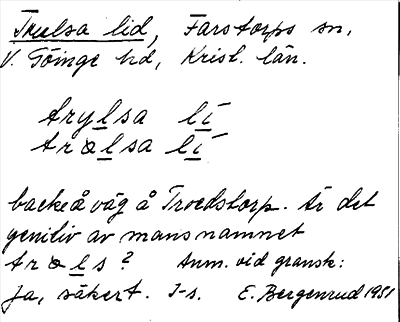 Trulsa lid, Farstorps sn,
V. Göinge hd, Krist. län.
trylsa lí
trølsa lí
backe å väg å Troedstorp. Är det
genitiv av mansnamnet
trøls? Anm. vid gransk:
Ja, säkert. I-s. E. Bergenrud 1951